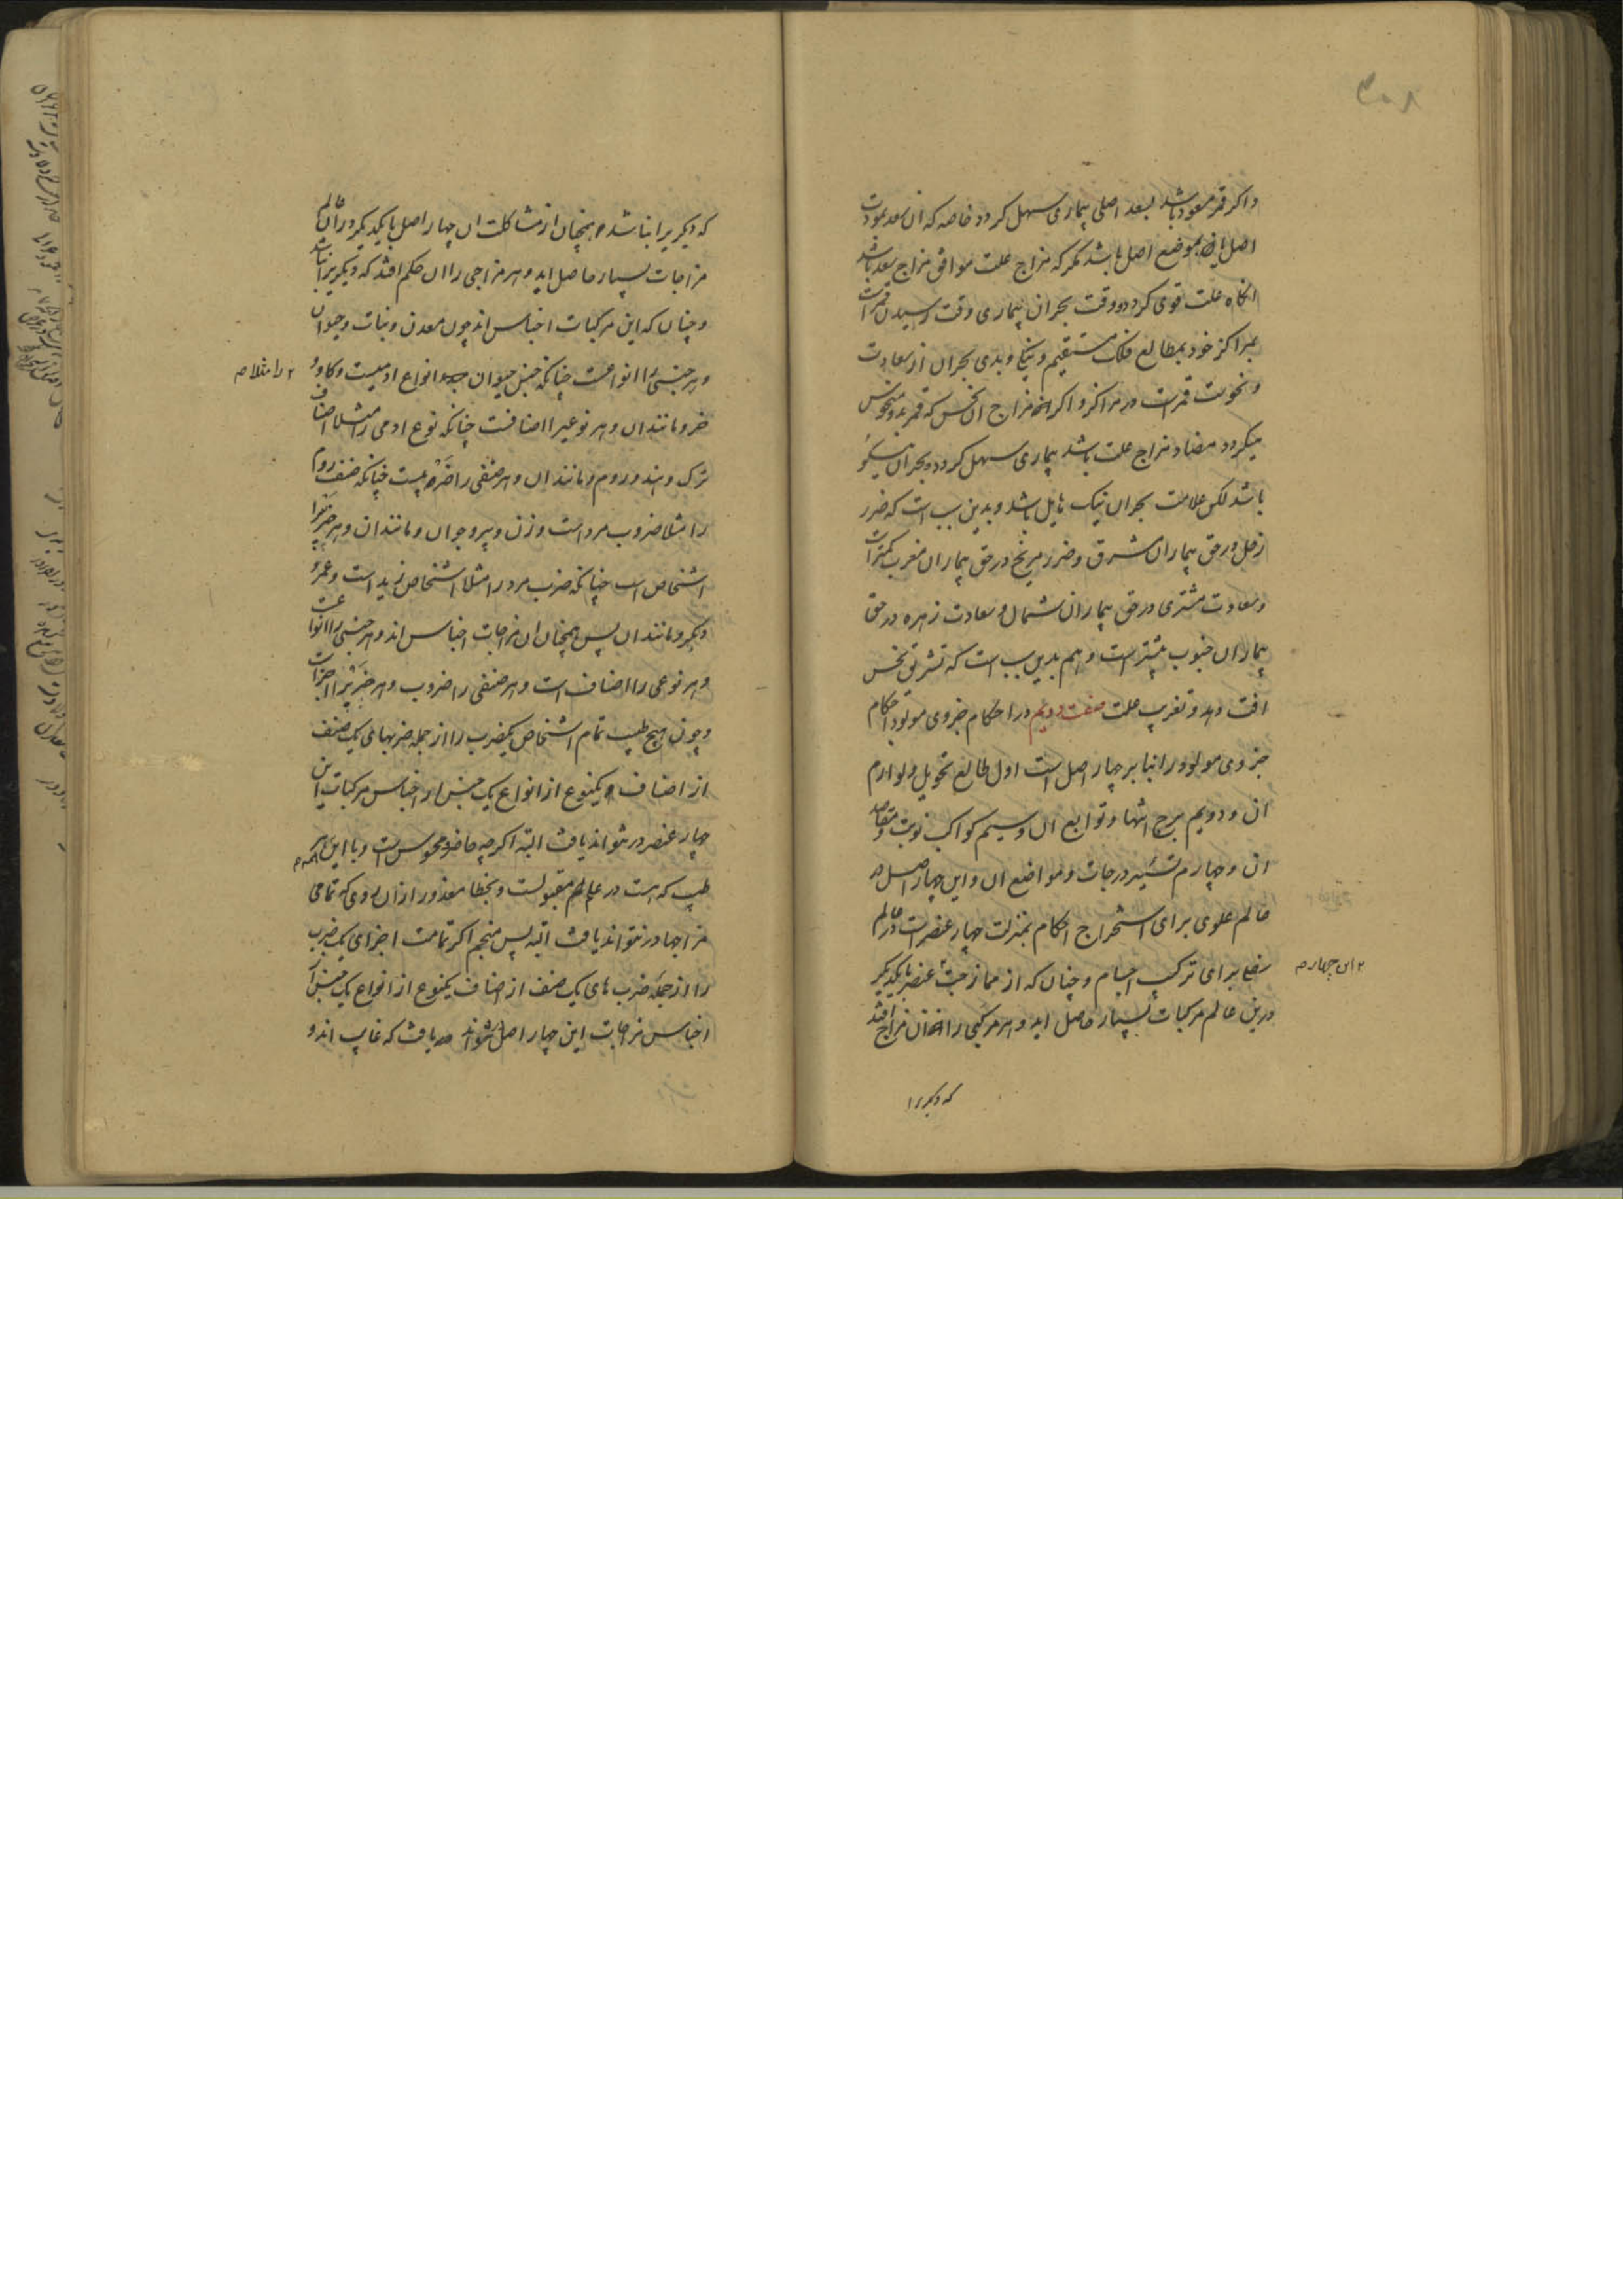 ۳۰۸
و اکر قمر مسعود باشد بسعد اصلی بیماری سهل کردد خاصه که ان سعد بموت
اصل یا بموضع اصل باشد مکر که مزاج علت موافق مزاج سعد باشد
انکاه علت قوی کردد و وقت بحران بیماری وقت رسیدن قمرست
بمراکز خود بمطالع فلک مستقیم و نیکی و بدی بحران از سعادت
و نحوست قمرست در مراکز و اکر مزاج ان نحس که قمر بدو منحوس
میکردد مضاد مزاج علت باشد بیماری سهل کردد و بحران نیکو
باشد لکن علامت بحران نیک هایل باشد و بدین سبب است که ضرر
زحل در حق بیماران مشرق و ضرر مریخ در حق بیماران مغرب کمتر است
و سعادت مشتری در حق بیماران شمال و سعادت زهره در حق
بیماران جنوب بیشتر است و هم بدین سبب است که تشریق نحس
افت دهد و تغریب علت صفت دویم در احکام جزوی مولود احکام
جزوی مولود را بنا بر چهار اصل است اول طالع تحویل و لوازم
ان و دویم برج انتها و توابع ان و سیم کواکب نوبت و مقاصد
ان و چهارم تسییر درجات و مواضع ان و این چهار اصل در
عالم علوی برای استخراج احکام بمنزلت چهار عنصر است در عالم
سفلی برای ترکیب اجسام و چنان که از ممازجت عنصر با یکدیکر
این چهار م
درین عالم مرکبات بسیار حاصل اید و هر مرکبی را ان مزاج افتد
که دیکریرا
که دیکریرا نباشد و همچنان از مشاکلت ان چهار اصل با یکدیکر در ان عالم
مزاجات بسیار حاصل اید و هر مزاجی را ان حکم افتد که دیکریرا نباشد
و چنان که این مرکبات اجناس اند چون معدن و نبات و حیوان
و هر جنسی را انواعست چنانکه جنس حیوان انواع ادمیست و کاو و
را مثلا م
خر و مانند ان و هر نوعیرا اصنافست چنانکه نوع ادمی را مثلا اصناف
ترک و هند و روم و مانند ان و هر صنفی را ضروبیست چنانکه صنف روم
را مثلا ضروب مرد است و زن و پیر و جوان و مانند ان و هر ضربیرا
اشخاص است چنانکه ضرب مرد را مثلا اشخاص زید است و عمرو
و بکر و مانند ان پس همچنان ان مزاجات اجناس اند و هر جنسی را انواعست
و هر نوعی را اصناف است و هر صنفی را ضروب و هر ضربیرا اجزاست
و چون هیچ طبیب تمام اشخاص یکضرب را از جمله ضربهای یک صنف
از اصناف یکنوع از انواع یک جنس از اجناس مرکبات این
چهار عنصر در نتواند یافت البته اکر چه حاضر و محسوس است و با این همه
طبیب که هست در علم مقبولست و بخطا معذور از ان روی که تمامی
مزاجها در نتواند یافت البته پس منجم اکر تمامت اجزای یک ضرب
را از جمله ضرب های یک صنف از اصناف یکنوع از انواع یک جنس از
اجناس مزاجات این چهار اصل نتواند یافت که غایب اند و